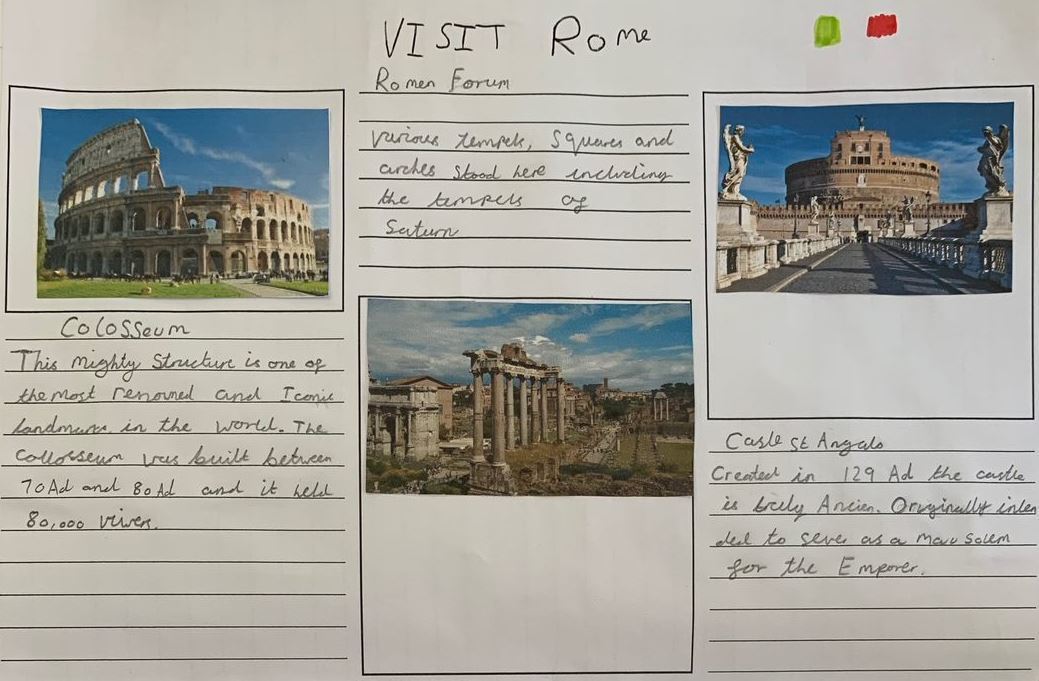 VISIT Rome
Colosseum
This Mighty Structure is one of
the most renouned and Iconic
landmark in the world. The
Collosseum was built between
70Ad and 80Ad and it held
80,000 vivers.
Romen Forum
various tempels, Squares and
arches stood here including
the tempels of
Saturn
Casle St Angalo
Created in 129 Ad the castle
is truly Ancien. Originally inten
ded to seve as a mausolem
for the Emporer.